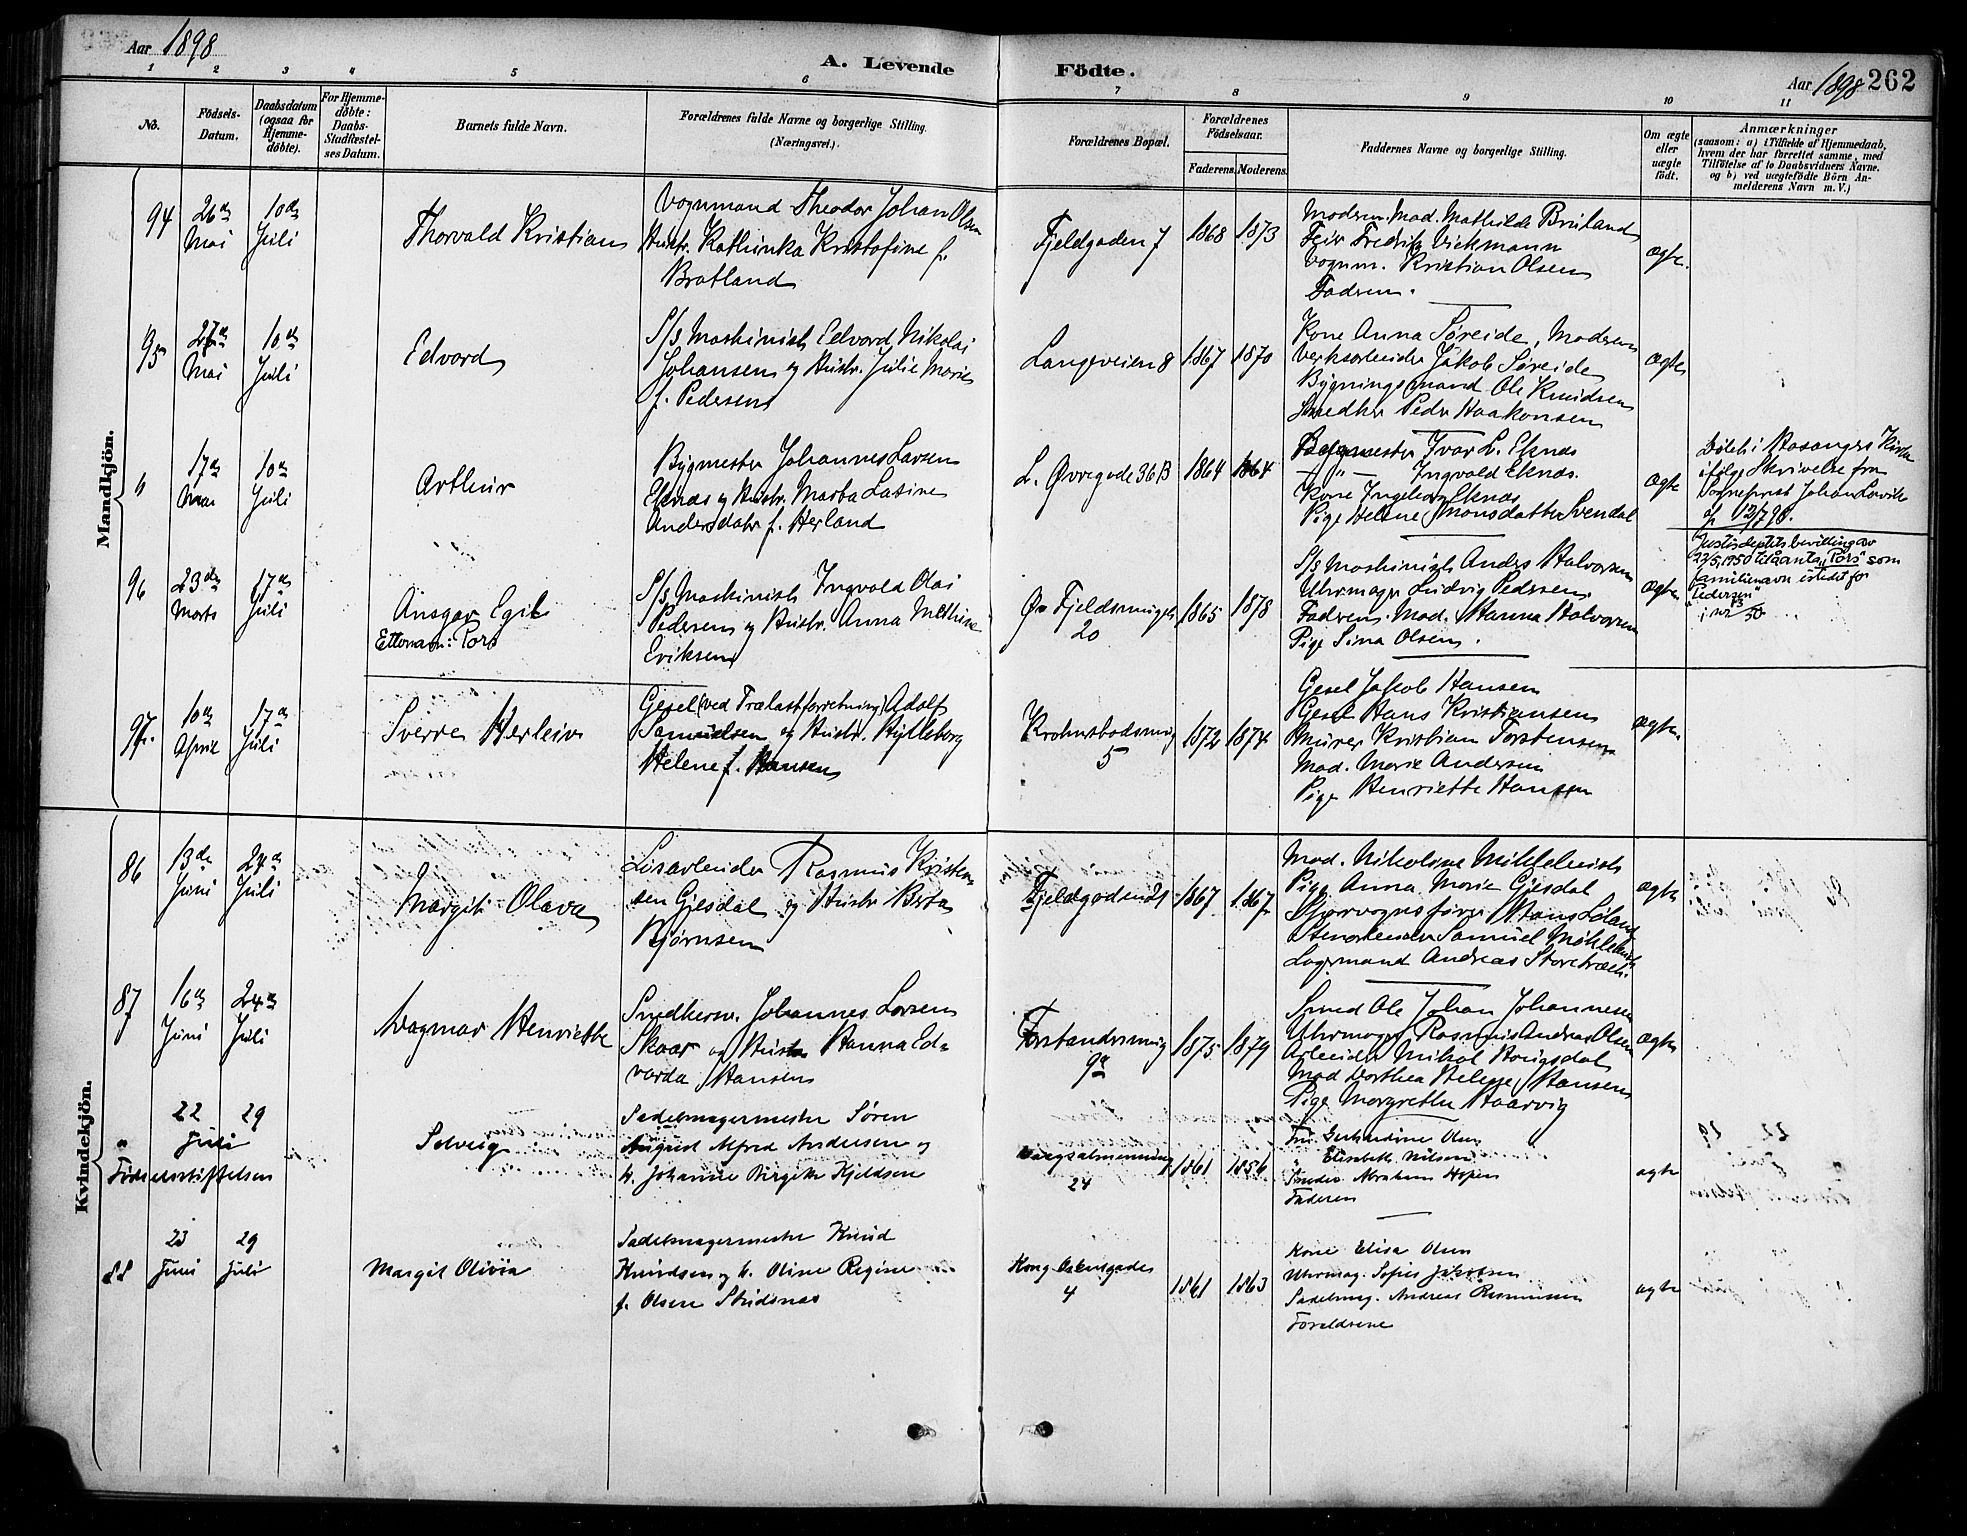 Aar 1898
A. Levende Födte.
Aar 1898 262
1 2 3 4 5 6 7 8 9 10 11
No.
Födsels-Datum.
Daabsdatum (ogsaa for Hjemmedöbte).
For Hjemmedöbte: Daabs-Stadfæstelses Datum.
Barnets fulde Navn.
Forældrenes fulde Navne og borgerlige Stilling.
(Næringsvei.)
Forældrenes Bopæl.
Forældrenes Födselsaar.
Faderens. Moderens.
Faddernes Navne og borgerlige Stilling.
Om ægte eller uægte födt.
Anmærkninger
(saasom: a) i Tilfælde af Hjemmedaab, hvem der har forrettet samme, med Tilföielse af to Daabsvidners Navne, og b) ved uægtefödte Börn Anmelderens Navn m. V.)
Mandkjön.
94
26de Mai
10de Juli
Thorvald Kristian
Vognmand Theodor Johan Olsen
Hustr. Kathinka Kristofine f.
Bratland
Fjeldgaden 7
1868 1873
Modern. Mad. Mathilde Bruland
Feier Fredrik Vickmann
Vognm. Kristian Olsen
Fadren.
ægte.
95
27de Mai
10de Juli
Edvard
S/s Maskinist Edvard Nikolai
Johansen og Hustr. Julie Marie
f. Pedersen
Langeveien 8
1867 1870
Kone Anna Søreide, Modren
Verksarbeider Jakob Søreide
Bygningsmand Ole Knudsen
Snedker Peder Haakonsen
ægte
"
17de Mai
10de Juli
Arthur
Bygmester Johannes Larsen
Eknæs og Hustr. Marta Lasine
Andersdatr f. Herland
L. Øvregade 36 B
1864 1864
Bygmester Ivar L. Eknæs
—"— Ingvald Eknæs.
Kone Ingeborg Eknæs
Pige Helene Monsdatter Svendal
ægte
Døbt i Hosangers Kirke
ifølge Skrivelse fra
Sogneprest Johan Lavik
af 12/7 98.
96
23de Marts
17de Juli
Ansgar Egil
Etternavn: Pors
S/s Maskinist Ingvald Olai
Pedersen og Hustr. Anna Mathine
Eriksen
Øv Fjeldsmuget
20
1865 1878
S/s Maskinist Anders Halvorsen
Uhrmager Ludvig Pedersen.
Fadren. Mad. Hanna Halvorsen
Pige Sina Olsen.
ægte
Justisdeptets bevilling av
22/5, 1950 til å anta "Pors" som
familienavn istedet for
"Pedersen"
97.
10de April
17de Juli
Sverre Herleiv
Gesel (ved Trælastforretning) Adolf
Samuelsen og Hustr. Hylleborg
Helene f. Hansen
Krohnsbodsmug
5
1872 1874
Gesel Jakob Hansen
Gesel Hans Kristiansen
Murer Kristian Torstensen
Mad. Marie Andersen
Pige Henriette Hansen
ægte.
Kvindekjön.
86
13de Juni
24de Juli
Margit Olava
Lisarbeider Rasmus Kristen-
sen Gjesdal og Hustr Berta
Bjørnsen
Fjeldgaden 21
1867 1867
Mad. Nikoline
Pige Anna Marie Gjesdal
Hans
Samuel
Lagermand Andreas
ægte
87
16de Juni
24de Juli
Dagmar Henriette
Snedkersv. Johannes Larsen
Skaar og Hustr Hanna Ed-
varda Hansen
Forstandersmug
9a
1875 1879
Smed Ole Johan Johannesen
Uhrmager Rasmus Andreas Olsen
Arbeider Mikal
Mad Dorthea Helene Hansen
Pige Margrethe Haarvig
ægte
"
22 Juli 29
Fødselsstiftelsen
Solveig
Sadelmagermester Søren
August Alfred Andersen og
h. Johanne Birgitte Kjeldsen
Vaagsalmenning
24
1861 1856
Fru Gerhardine Olsen
Elisabeth Nilsen
Snedker. Abraham Hopen
Faderen
ægte
88
23 Juni
29 Juli
Margit Olivia
Sadelmagermester Knud
Knudsen og h. Oline Regine
f. Olsen Stridsnæs
Kong Oskarsgade
4
1861 1863
Kone Elisa Olsen
Uhrmag. Sofus Jakobsen
Sadelmag. Andreas Rasmussen
Forældrene
ægte